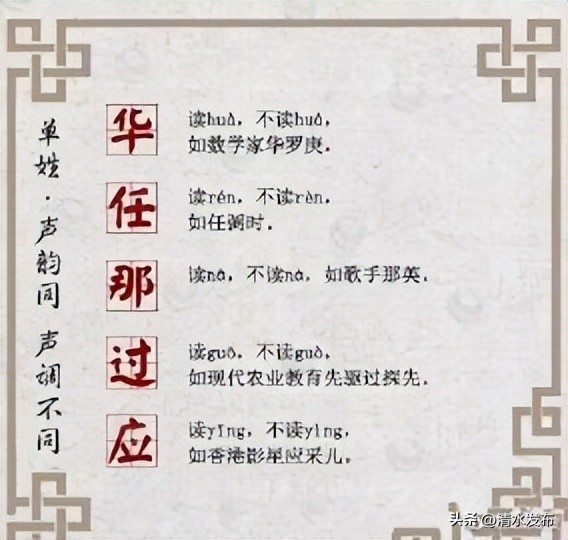 单姓·声韵同 声调不同
华
读huà，不读huá，
如数学家华罗庚.
任
读rén，不读rèn，
如任弼时.
那
读nā，不读nà，如歌手那英.
过
读guō，不读guò，
如现代农业教育先驱过探先.
应
读yīng，不读yìng，
如香港影星应采儿.
头条 @清水发布